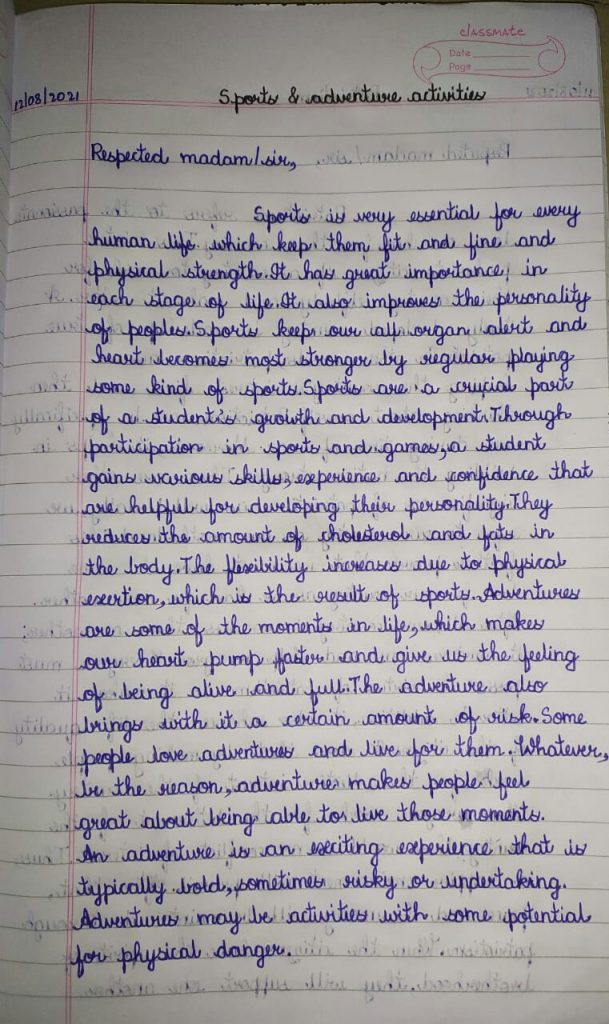 classmate
Date
Page
12/08/2021
Sports & adventure activities
Respected madam/sir,
Sports is very essential for every
human life which keep them fit and fine and
physical strength. It has great importance in
each stage of life. It also improves the personality
of peoples. Sports keep our all organ alert and
heart becomes most stronger by regular playing
some kind of sports. Sports are a crucial part
of a student's growth and development. Through
participation in sports and games, a student
gains various skills, experience and confidence that
are helpful for developing their personality. They
reduces the amount of cholesterol and fats in
the body. The flexibility increases due to physical
exertion, which is the result of sports. Adventures
are some of the moments in life, which makes
our heart pump faster and give us the feeling
of being alive and full. The adventure also
brings with it a certain amount of risk. Some
people love adventures and live for them. Whatever,
be the reason, adventure makes people feel
great about being able to live those moments.
An adventure is an exciting experience that is
typically bold, sometimes risky or undertaking.
Adventures may be activities with some potential
for physical danger.